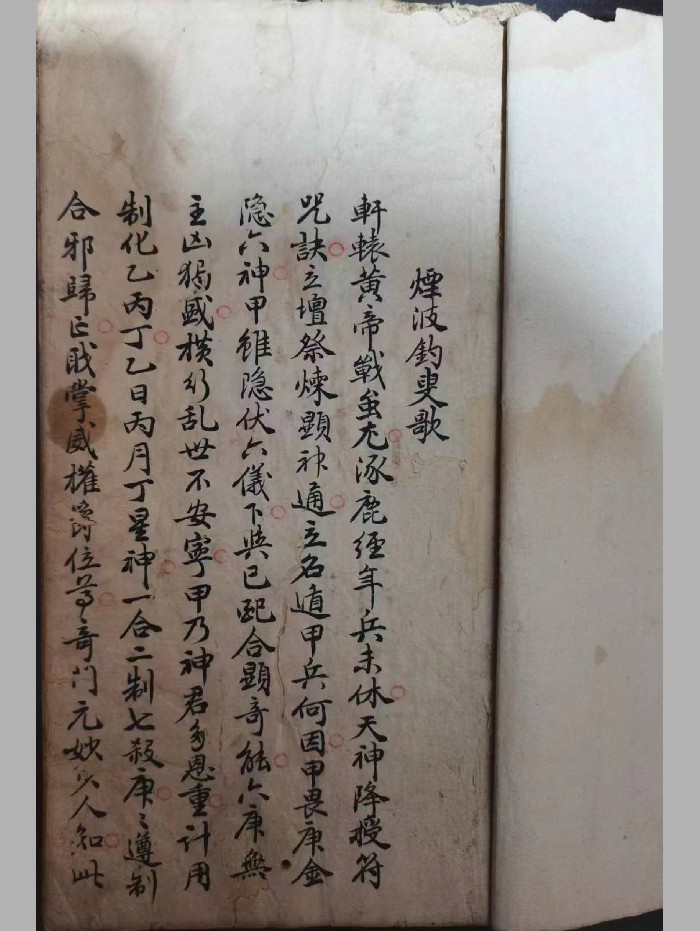 煙波釣叟歌
軒轅黃帝戰蚩尤涿鹿經年兵未休天神降授符
咒訣立壇祭煉顯神通立名遁甲兵何因甲畏庚金
隐六神甲雖隐伏六儀下與己配合顯奇能六庚無
主凶猖盛横行乱世不安寧甲乃神君多恩重计用
制化乙丙丁乙日丙月丁星神一合二制七殺庚〻遵制
合邪歸正戝掌威權爵位尊奇门元妙少人知此